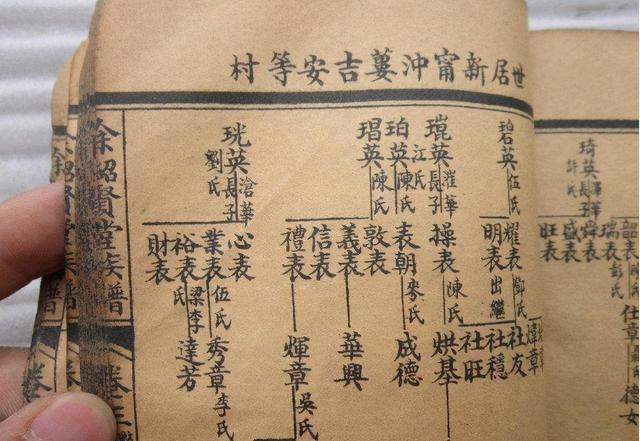 世居新甯沖蔞吉安等村
琦英澤華長子許氏
韶表陳氏
瑞表彭氏
舜表
盛表
旺表
仕章
德女
碧英伍氏
琨英灌華長子江氏
珀英陳氏
琩英陳氏
珖英滄華長子劉氏
耀表鄭氏
明表出繼
操表陳氏
表朝麥氏
敦表
義表
信表
禮表
心表
業表伍氏
裕表梁李氏
財表
煒章
社友
社穩
社旺
烘基
成德
華興
煇章吳氏
秀章李氏
達芳
余紹賢堂族譜
卷三